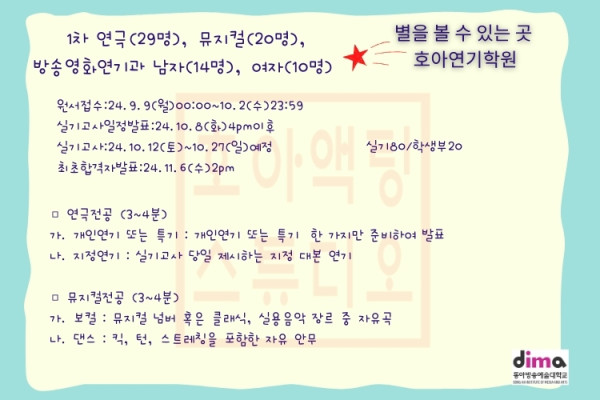 1차 연극(29명), 뮤지컬(20명),
방송영화연기과 남자(14명), 여자(10명)
별을 볼 수 있는 곳
호아연기학원
원서접수:24.9.9(월)00:00~10.2(수)23:59
실기고사일정발표:24.10.8(화)4pm이후
실기고사:24.10.12(토)~10.27(일)예정
실기80/학생부20
최초합격자발표:24.11.6(수)2pm
□ 연극전공 (3~4분)
가. 개인연기 또는 특기 : 개인연기 또는 특기 한 가지만 준비하여 발표
나. 지정연기 : 실기고사 당일 제시하는 지정 대본 연기
□ 뮤지컬전공 (3~4분)
가. 보컬 : 뮤지컬 넘버 혹은 클래식, 실용음악 장르 중 자유곡
나. 댄스 : 킥, 턴, 스트레칭을 포함한 자유 안무
호아액팅
스튜디오
dima
동아방송예술대학교